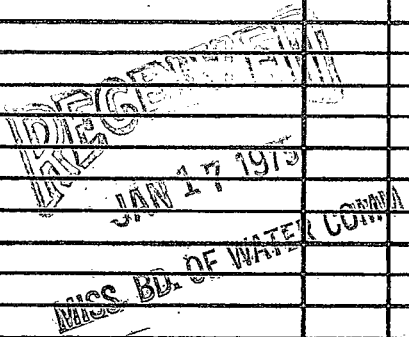 RECEIVED
JAN 17 1975
MISS. BD. OF WATER COMM